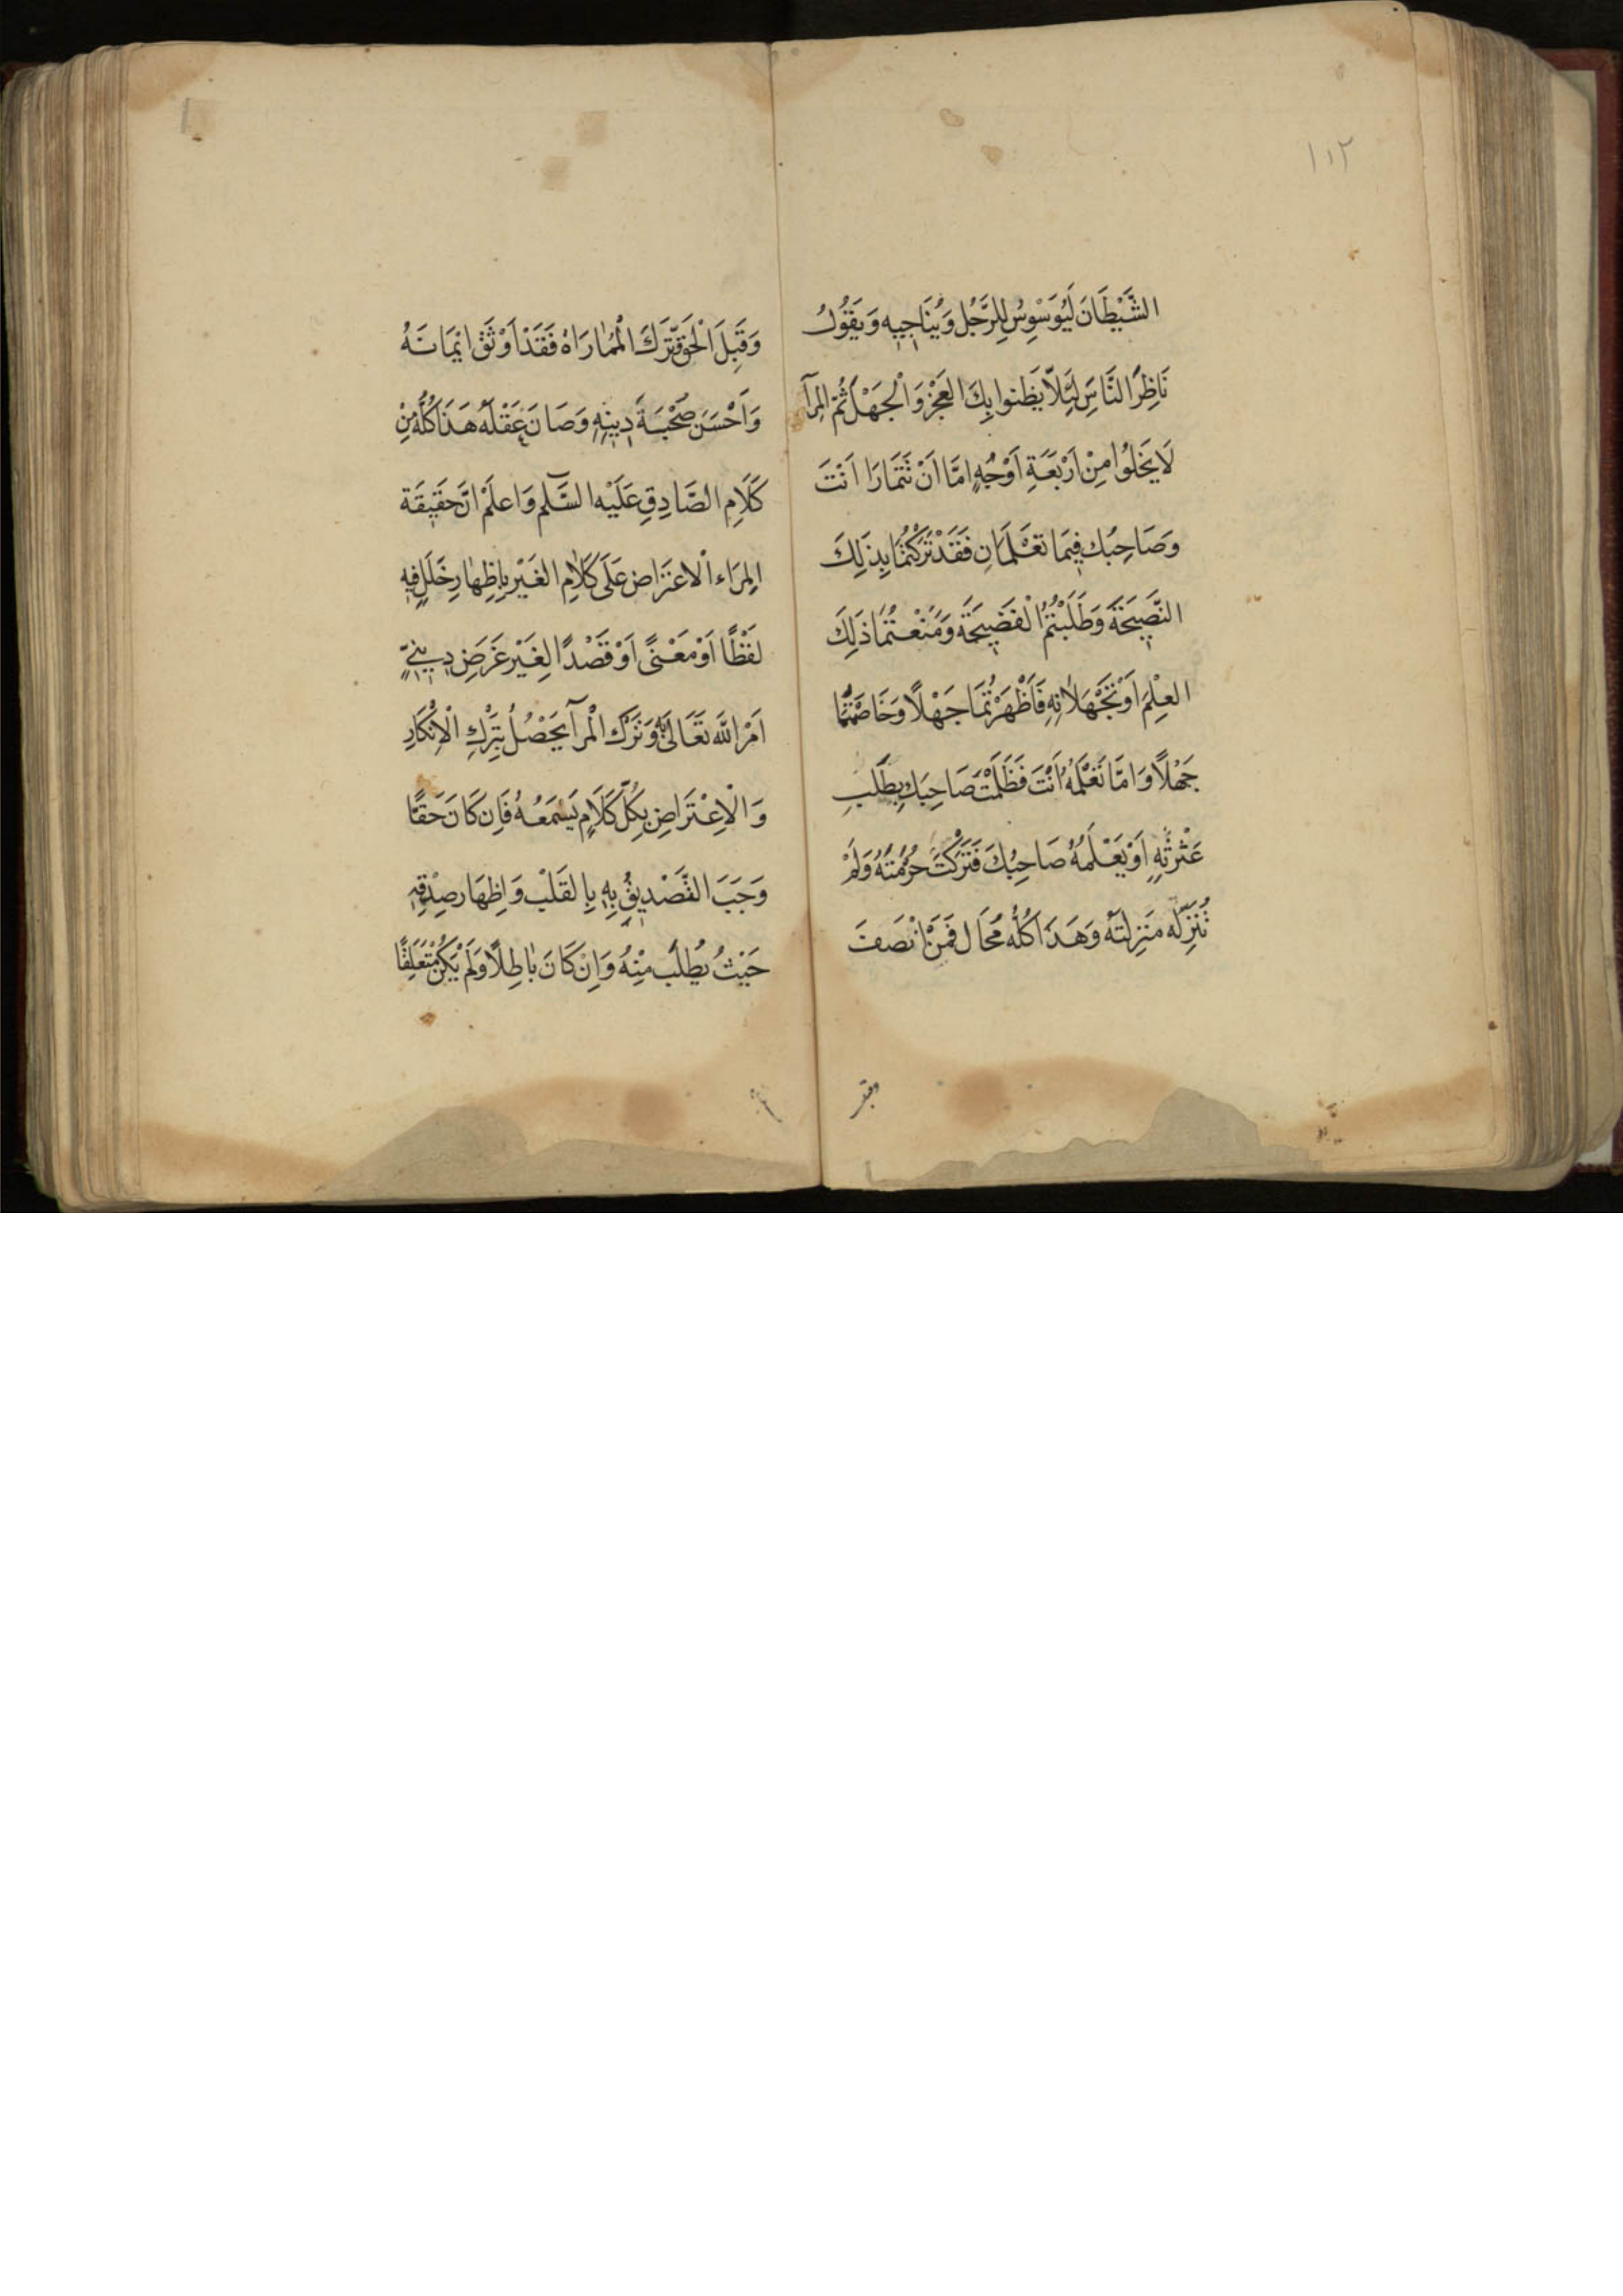 ١١٢
الشَّيْطَانَ لَيُوَسْوِسُ لِلرَّجُلِ وَيُنَاجِيهِ وَيَقُولُ
نَاظِرِ النَّاسَ لِئَلَّا يَظُنوا بِكَ العَجْزَ وَالْجَهْلَ ثُمَّ المِرَآ
لَا يَخْلُوا مِنْ اَرْبَعَةِ اَوْجُهٍ اِمَّا اَنْ تَتَمَارَا اَنْتَ
وَصَاحِبُك فِيمَا تَعْلَمَانِ فَقَدْ تَرَكْتُمَا بِذَلِكَ
النَّصِيحَةَ وَطَلَبْتُمُا الْفَضِيحَةَ وَمَنَعْتُمَا ذَلِكَ
العِلْمَ اَوْ تَجْهَلَانِهِ فَاَظْهَرْتُمَا جَهْلًا وَخَاصَمْتُمَا
جَهْلًا وَاِمَّا تَعْلَمُهُ اَنْتَ فَظَلَمْتَ صَاحِبَك بِطَلَبِ
عَثْرَتِهِ اَوْ يَعْلَمُهُ صَاحِبُكَ فَتَرَكْتَ حُرْمَتَهُ وَلَمْ
تُنَزِّلْه مَنْزِلَتَهُ وَهَذَا كُلُّه مُحَال فَمَنْ اَنْصَفَ
وقبل
وَقَبِلَ الْحَقَّ وَتَرَكَ الْمُمَارَاةَ فَقَدْ اَوْثَقَ اِيْمَانَهُ
وَاَحْسَنَ صُحْبَةَ دِينِهِ وَصَانَ عَقْلَهُ هَذَا كُلُّهُ مِنْ
كَلَامِ الصَّادِقِ عَلَيْهِ السَّلم وَاعلَمْ اَنَّ حَقِيقَة
المِرَاء الْاعتَرَاض عَلَى كَلَامِ الغَيْر بِاِظِهَارِ خَلَلٍ فِيهِ
لَفْظًا اَوْ مَعْنىً اَوْ قَصْدًا لِغَيْر غَرَضٍ دِينِيٍّ
اَمَرَ اللَّه تَعَالَى بِهِ وَتَرْكُ الْمرآ يَحْصُلُ بِتَرْكِ الْاِنْكَارِ
وَالْاِعْتَرَاضِ بِكُلِّ كَلَامٍ يَسْمَعُهُ فَاِن كَانَ حَقًا
وَجَبَ التَّصْدِيقُ بِهِ بِالقَلْب وَاِظهَار صِدْقِهِ
حَيْثُ يُطْلَب مِنْهُ وَاِنْ كَانَ بَاطِلًا وَلَمْ يَكُنْ مُتَعَلِقًا